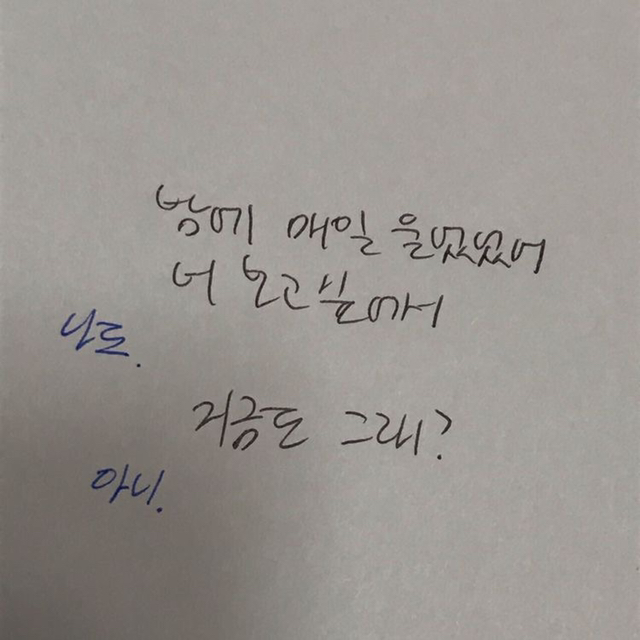 밤에 매일 울었었어
너 보고싶어서
나도.
지금도 그래?
아니.